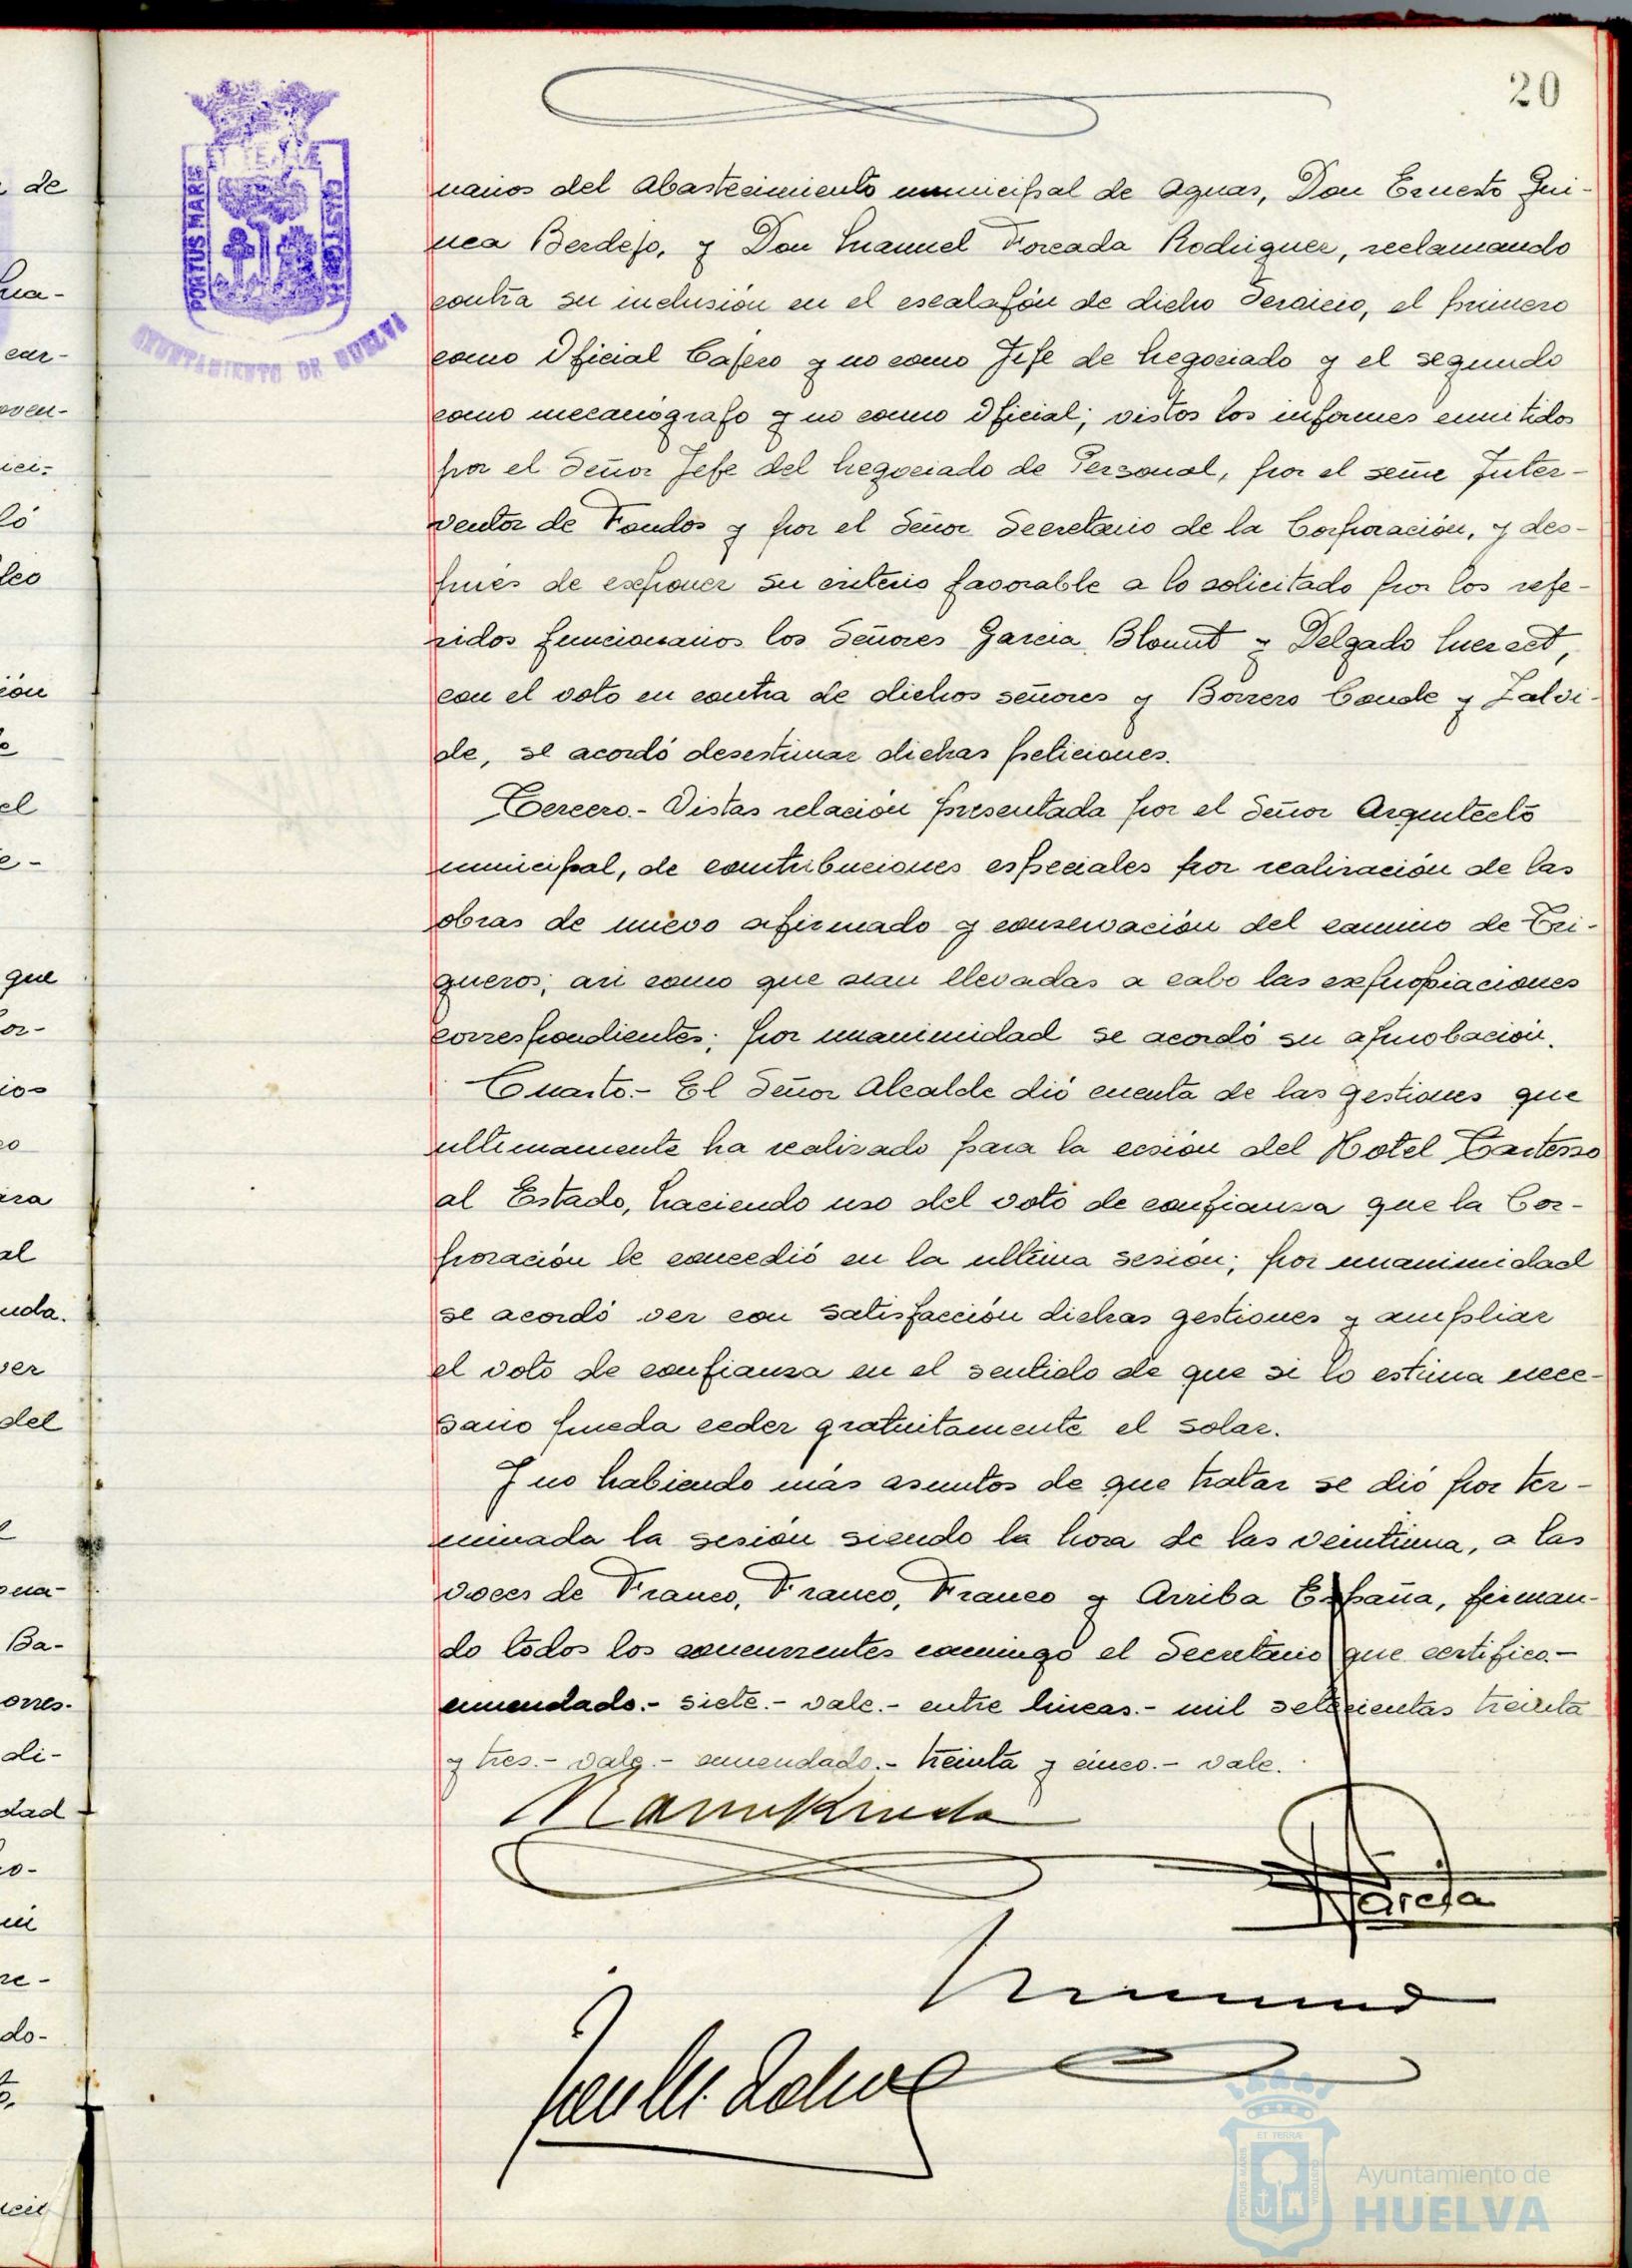 20
PORTUS MARIS
ET TERRÆ
CUSTODIA
AYUNTAMIENTO DE HUELVA
narios del Abastecimiento municipal de Aguas, Don Ernesto Gui-
nea Berdejo, y Don Manuel Forcada Rodriguez, reclamando
contra su inclusión en el escalafón de dicho Servicio, el primero
como Oficial Cajero y no como Jefe de Negociado y el segundo
como mecanógrafo y no como Oficial; vistos los informes emitidos
por el Señor Jefe del Negociado de Personal, por el señor Inter-
ventor de Fondos y por el Señor Secretario de la Corporación, y des-
pués de exponer su criterio favorable a lo solicitado por los refe-
ridos funcionarios los Señores Garcia, Blomut y Delgado
con el voto en contra de dichos señores y Borrero Conde y Zalvi-
de, se acordó desestimar dichas peticiones.
Tercero.- Vistas relación presentada por el Señor Arquitecto
municipal, de contribuciones especiales por realización de las
obras de nuevo afirmado y conservación del camino de Tri-
gueros; asi como que sean llevadas a cabo las expropiaciones
correspondientes; por unanimidad se acordó su aprobación.
Cuarto.- El Señor Alcalde dió cuenta de las gestiones que
ultimamente ha realizado para la cesión del Hotel Tartesso
al Estado, haciendo uso del voto de confianza que la Cor-
poración le concedió en la ultima sesión; por unanimidad
se acordó ver con satisfacción dichas gestiones y ampliar
el voto de confianza en el sentido de que si lo estima nece-
sario pueda ceder gratuitamente el solar.
Y no habiendo más asuntos de que tratar se dió por ter-
minada la sesión siendo la hora de las veintiuna, a las
voces de Franco, Franco, Franco y Arriba España, firman-
do todos los concurrentes conmigo el Secretario que certifico.-
enmendado.- siete.- vale.- entre lineas.- mil setecientas treinta
y tres.- vale.- enmendado.- treinta y cinco.- vale.
Garcia
Ayuntamiento de
HUELVA